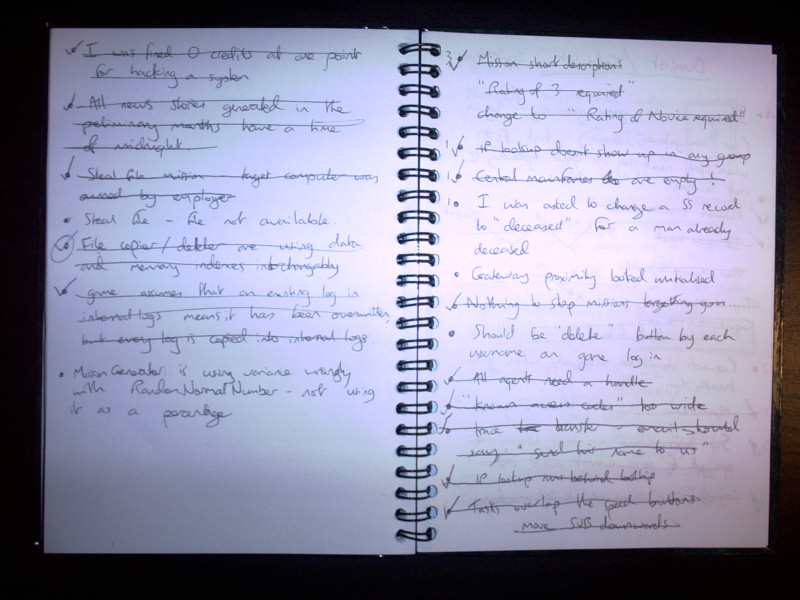 I was fined 0 credits at one point
for hacking a system
All news stories generated in the
preliminary months have a time
of midnight
Steal file mission - target computer was
owned by employer
Steal file - file not available.
File copier / deleter are using data
and memory indexes interchangably
game assumes that an existing log in
internal logs means it has been overwritten,
but every log is copied into internal logs.
MissionGenerator is using variance wrongly
with RandomNormalNumber - not using
it as a percentage
3 Mission short descriptions
"Rating of 3 required"
change to "Rating of Novice required"
1 IP lookup doesnt show up in any group
1 Central mainframes are empty!
1 I was asked to change a SS record
to "deceased" for a man already
deceased
Gateway proximity looked unitialised
Nothing to stop missions targetting your...
Should be "delete" button by each
username on game log in
All agents need a handle
"Known access codes" too wide
trace transfer - email should
say "send his name to us"
IP lookup behind
Tasks overlap the speed buttons
move SUB downwards